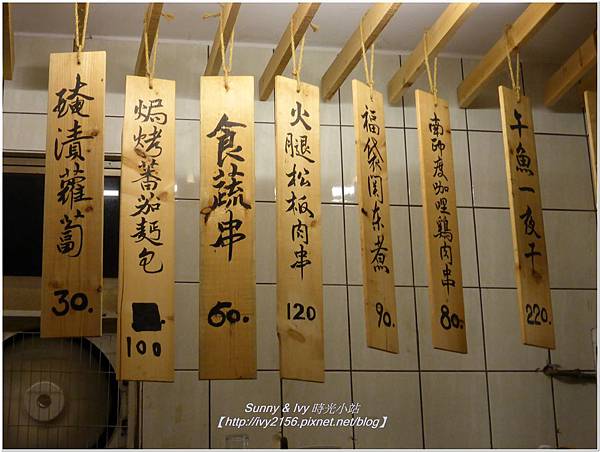 醃漬蘿蔔
30.
焗烤蕃茄麵包
100
食蔬串
60.
火腿松板肉串
120
福袋関东煮
90.
南印度咖哩鷄肉串
80.
午魚一夜干
220.
Sunny & Ivy 時光小站
【http://ivy2156.pixnet.net/blog】